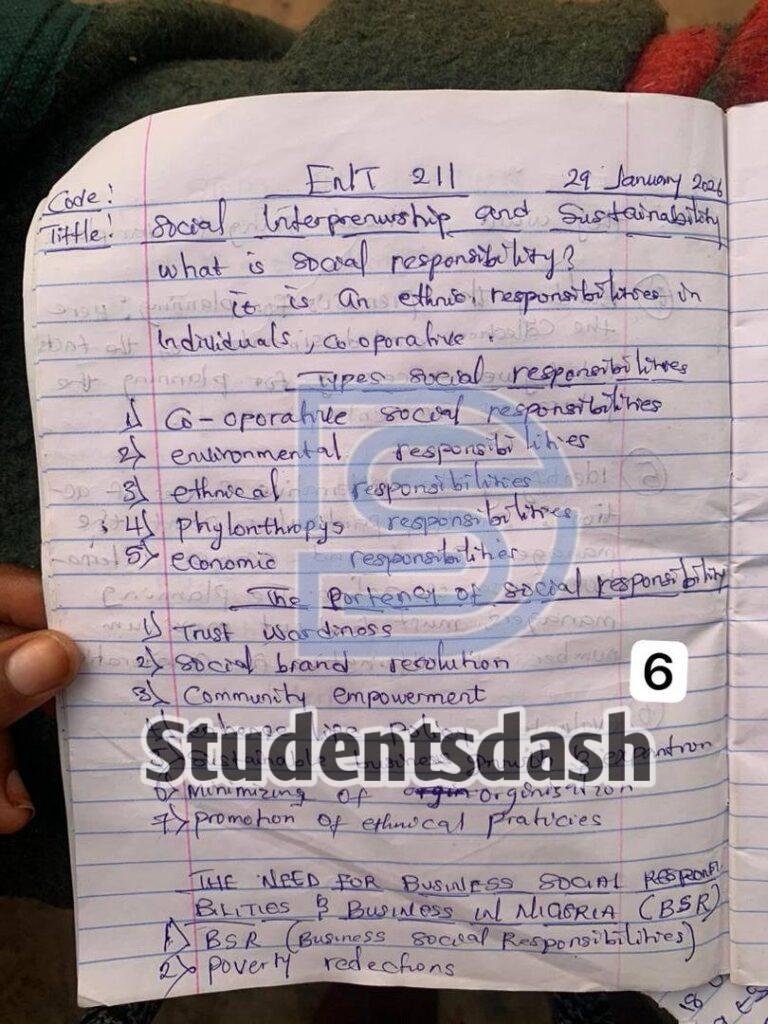 ENT 211 29 January 2026
Code:
Tittle: Social Interprenurship and Sustainability
What is social responsibility?
it is an ethnic responsibilities in
individuals, co oporative.
Types social responsibilities
1) Co-oporative social responsibilities
2) environmental responsibilities
3) ethnical responsibilities
4) phylonthropys responsibilities
5) economic responsibilities
The portency of social responsibility
1) Trust wordiness
2) Social brand resolution
3) Community empowerment
6
Studentsdash
5) Sustainable business growth & expantion
6) Minimizing of orginisation
7) promotion of ethnical praticies
THE NEED FOR BUSINESS SOCIAL RESPONSI
BILITIES & BUSINESS IN NIGERIA (BSR)
1) BSR (Business Social Responsibilities)
2) poverty redections